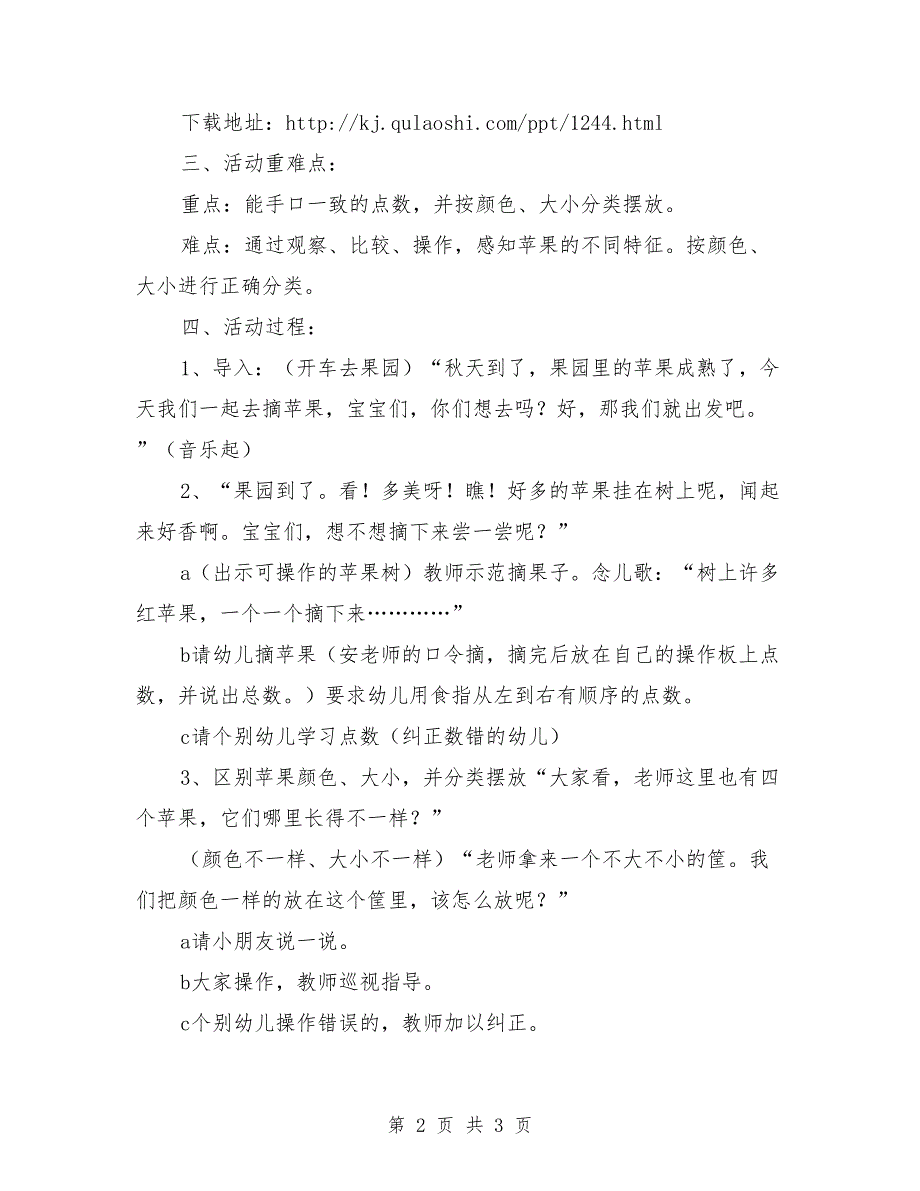 下载地址：http://kj.qulaoshi.com/ppt/1244.html
三、活动重难点：
重点：能手口一致的点数，并按颜色、大小分类摆放。
难点：通过观察、比较、操作，感知苹果的不同特征。按颜色、
大小进行正确分类。
四、活动过程：
1、导入：（开车去果园）“秋天到了，果园里的苹果成熟了，今
天我们一起去摘苹果，宝宝们，你们想去吗？好，那我们就出发吧。
”（音乐起）
2、“果园到了。看！多美呀！瞧！好多的苹果挂在树上呢，闻起
来好香啊。宝宝们，想不想摘下来尝一尝呢？”
a（出示可操作的苹果树）教师示范摘果子。念儿歌：“树上许多
红苹果，一个一个摘下来…………”
b请幼儿摘苹果（安老师的口令摘，摘完后放在自己的操作板上点
数，并说出总数。）要求幼儿用食指从左到右有顺序的点数。
c请个别幼儿学习点数（纠正数错的幼儿）
3、区别苹果颜色、大小，并分类摆放“大家看，老师这里也有四
个苹果，它们哪里长得不一样？”
（颜色不一样、大小不一样）“老师拿来一个不大不小的筐。我
们把颜色一样的放在这个筐里，该怎么放呢？”
a请小朋友说一说。
b大家操作，教师巡视指导。
c个别幼儿操作错误的，教师加以纠正。
第 2 页 共 3 页